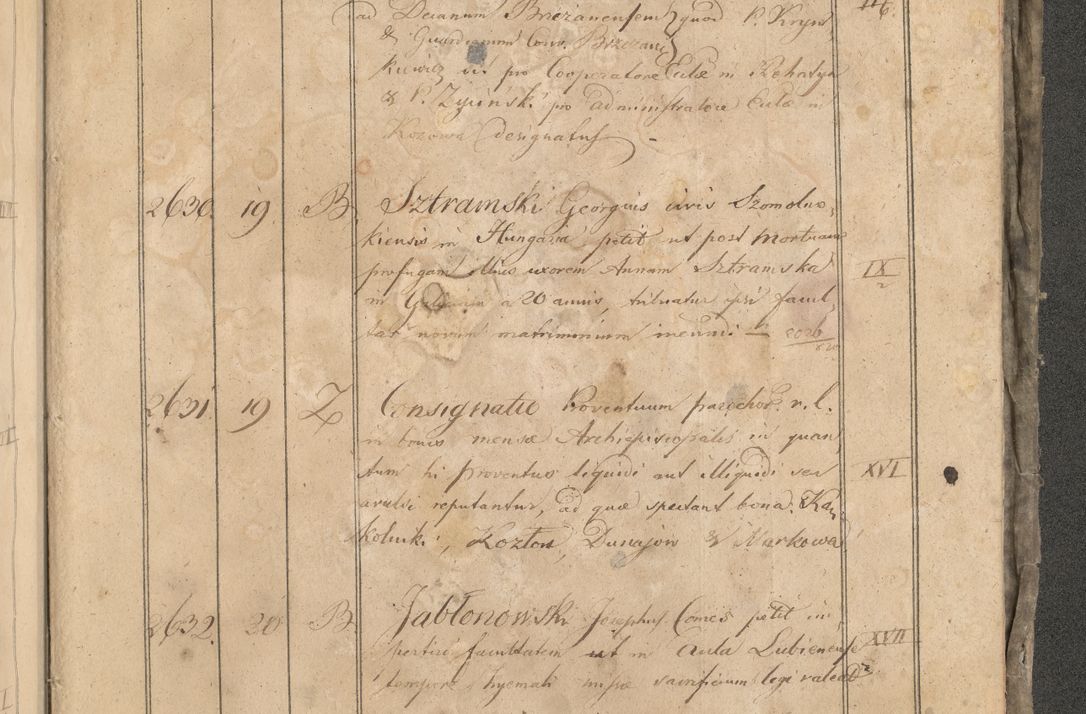 ad Decanum Brzeżanensem quod P. Kryni
& Guardianum Conv. Brzezan
kiewicz ut pro Cooperatore Eccl&aelig; in Rohatyn
& P. Zyciński pro administratore Eccl&aelig; in
Kozowa designatus -
116.
2630. 19. B. Sztramski Georgius civis Szomolno,
kiensis in Hungaria petit ut post mortuam
profugam illius uxorem Annam Sztramska
IX
2
in a 20 annis, tribuatur ipsi facul
tas novum matrimonium ineundi
2631. 19 Z Consignatio Proventuum paroch. r. l.
in bonis mensæ Archiepiscopalis in quan
tum hi proventus liquidi aut illiquidi seu
XVI
avulsi reputantur, ad quæ spectant bona: Ka,
kolniki, Kozłow, Dunajow & Markowa
2632. 20 B. Jabłonowski Josephus Comes petit im
pertiri facultatem ut in Aula Lubienense
XVII
2
tempore hyemali missæ sacrificium legi valeat